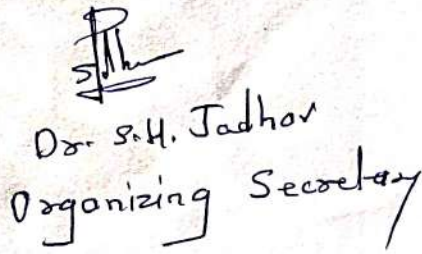 Dr. S.H. Jadhav
Organizing Secretary